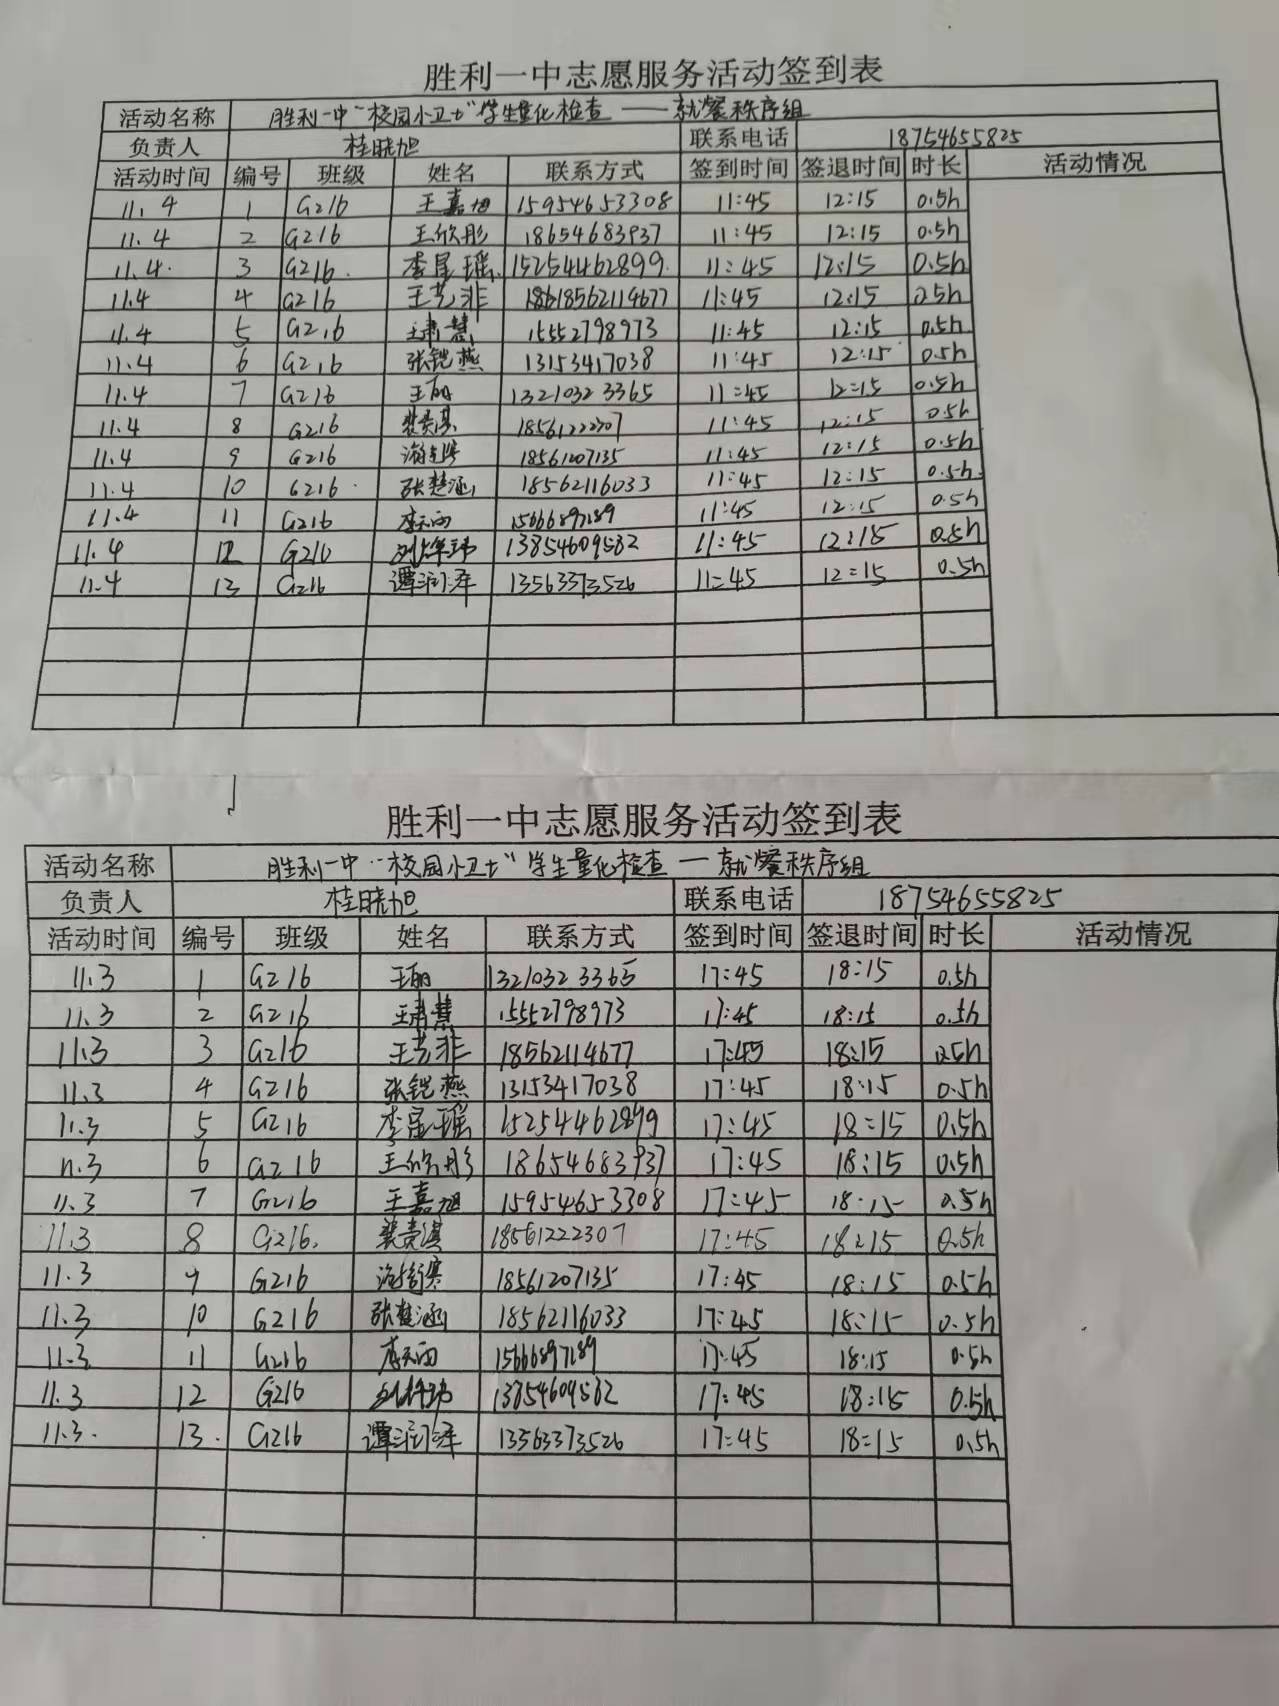 胜利一中志愿服务活动签到表
活动名称 胜利一中“校园小卫士”学生量化检查——就餐秩序组
负责人 桂晓旭 联系电话 18754655825
活动时间 编号 班级 姓名 联系方式 签到时间 签退时间 时长 活动情况
11.4 1 G216 王嘉旭 15954653308 11:45 12:15 0.5h
11.4 2 G216 王欣彤 18654683937 11:45 12:15 0.5h
11.4. 3 G216. 李星瑶 15254462899. 11:45 12:15 0.5h
11.4 4 G216 王艺非 11:45 12:15 0.5h
11.4 5 G216 15552798973 11:45 12:15 0.5h
11.4 6 G216 张铠燕 13153417038 11:45 12:15 0.5h
11.4 7 G216 13210323365 11:45 12:15 0.5h
11.4 8 G216 18561222307 11:45 12:15 0.5h
11.4 9 G216 18561207135 11:45 12:15 0.5h
11.4 10 G216 张楚涵 18562116033 11:45 12:15 0.5h
11.4 11 G216 15666897189 11:45 12:15 0.5h
11.4 12 G216 13854609582 11:45 12:15 0.5h
11.4 13 G216 谭润泽 13563373526 11:45 12:15 0.5h
胜利一中志愿服务活动签到表
活动名称 胜利一中“校园小卫士”学生量化检查—就餐秩序组
负责人 桂晓旭 联系电话 18754655825
活动时间 编号 班级 姓名 联系方式 签到时间 签退时间 时长 活动情况
11.3 1 G216 13210323365 17:45 18:15 0.5h
11.3 2 G216 15552798973 17:45 18:15 0.5h
11.3 3 G216 王艺非 18562114677 17:45 18:15 0.5h
11.3 4 G216 张铠燕 13153417038 17:45 18:15 0.5h
11.3 5 G216 李星瑶 15254462899 17:45 18:15 0.5h
11.3 6 G216 王欣彤 18654683937 17:45 18:15 0.5h
11.3 7 G216 王嘉旭 15954653308 17:45 18:15 0.5h
11.3 8 G216. 18561222307 17:45 18:15 0.5h
11.3 9 G216 18561207135 17:45 18:15 0.5h
11.3 10 G216 张楚涵 18562116033 17:45 18:15 0.5h
11.3 11 G216 15666897189 17:45 18:15 0.5h
11.3 12 G216 13854609582 17:45 18:15 0.5h
11.3. 13. G216 谭润泽 13563373526 17:45 18:15 0.5h